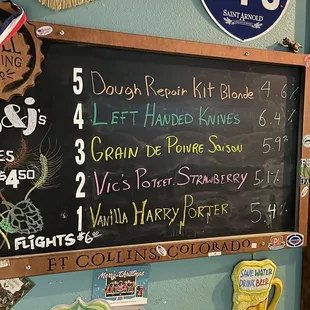 SAINT ARNOLD
5 Dough Repair Kit Blonde 4.6%
4 LEFT HANDED KNIVES 6.4%
3 GRAIN DE POIVRE SAISON 5.9%
2 VIC'S POTEET STRAWBERRY 5.1%
1 VANILLA HARRY PORTER 5.4%
&j's
$4.50
FLIGHTS $6
FT COLLINS, COLORADO
Merry Christmas
SAVE WATER
DRINK BEER